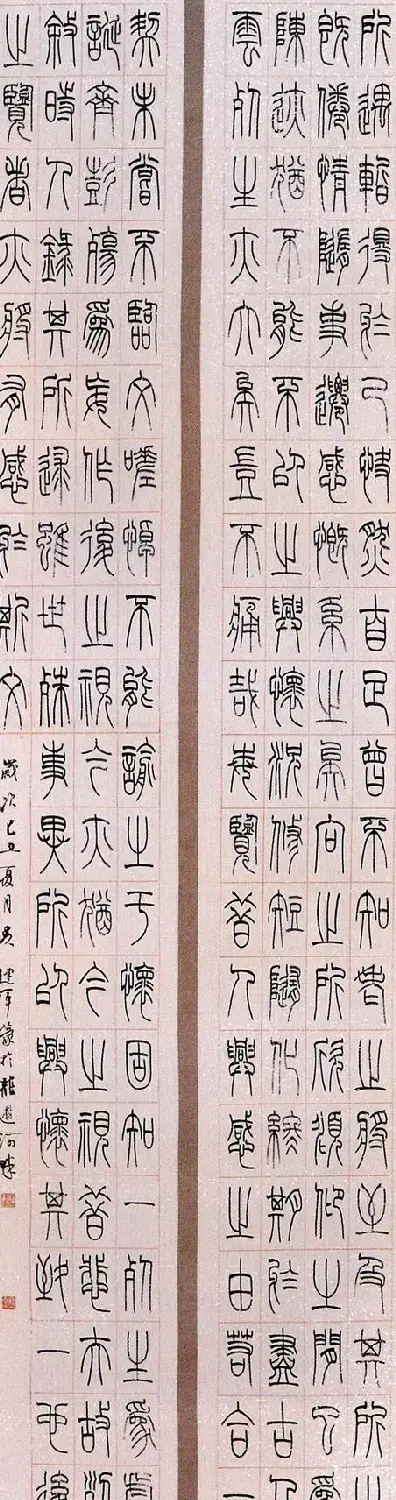 所遇暫得於己快然自足曾不知老之將至及其所之
既倦情隨事遷感慨系之矣向之所欣頫仰之間已為
陳迹猶不能不以之興懷況修短隨化終期於盡古人
雲死生亦大矣豈不痛哉每覽昔人興感之由若合一
契未嘗不臨文嗟悼不能諭之于懷固知一死生為
誕齊彭殤為妄作後之視今亦猶今之視昔悲夫故列
敘時人錄其所述雖世殊事異所以興懷其致一也後
之覽者亦將有感於斯文
歲次己丑夏月吳建軍錄於龍游河畔